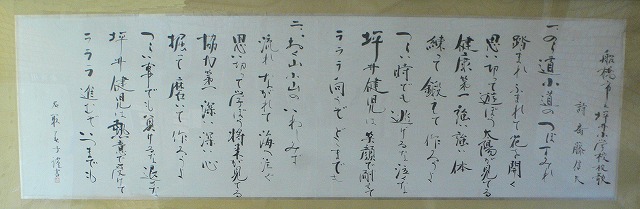 船橋市立坪井小学校校歌
詩 斎藤信夫
一、のの道小道の つぼすみれ
踏まれふまれて 花と開く
思い切って遊ぼう 太陽が見てる
健康第一 強い強い体
練って鍛えて 作ろうよ
つらい時でも逃げるな泣くな
坪井健児は 笑顔で
ラララ どこまでも
二、お山小山の いわしみず
流れながれて 海へ注ぐ
思い切って学ぼう 将来が見てる
協力第一 深い深い心
掘って磨いて 作ろうよ
つらい事でも負けるな退くな
坪井健児は 熱意で受けて
ラララ 進むぞいつまでも
謹書